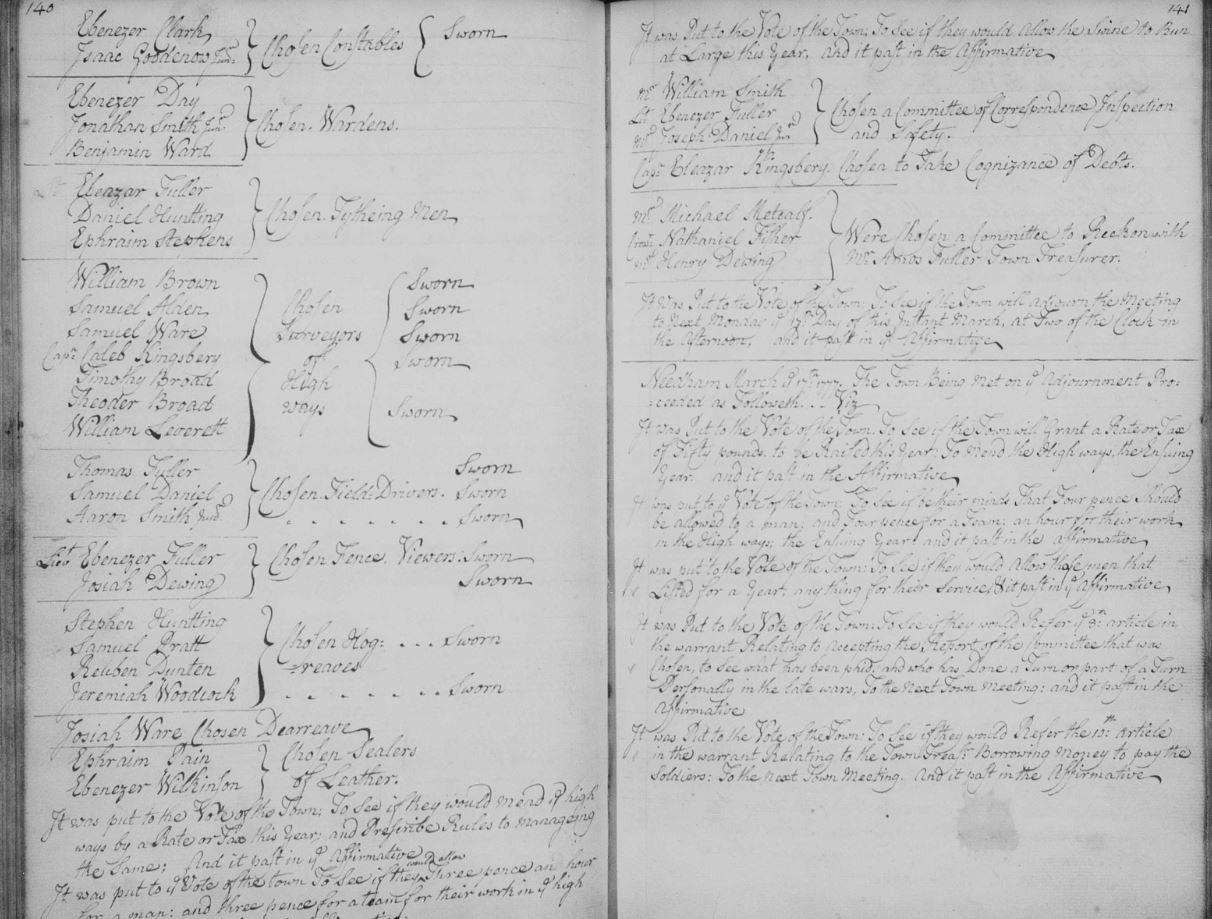 140
Ebenezer Clark
Isaac Goodenow Junr.
Chosen Constables
Sworn
Ebenezer Day
Jonathan Smith Junr.
Benjamin Ward
Chosen. Wardens.
Ebeazar Fuller
Daniel Huntting
Ephraim Stephens
Chosen. Tytheing Men
William Brown
Samuel Alden
Samuel Ware
Capt. Caleb Kingsbery
Timothy Broad
Theoder Broad
William Leverett
Chosen
Surveyors
of
High
ways
Sworn
Sworn
Sworn
Sworn
Sworn
Thomas Fuller
Samuel Daniel
Aaron Smith Junr.
Chosen Field=Drivers.
Sworn
Sworn
. . . . . . . . Sworn
Lieut Ebenezer Fuller
Josiah Dewing
Chosen Fence. Viewers: Sworn
Sworn
Stephen Huntting
Samuel Pratt
Reuben Dunten
Jeremiah Woodcock
Chosen Hog: . . . Sworn
=reaves
. . . . . . . . Sworn
Josiah Ware Chosen Dearreave
Ephraim Pain
Ebenezer Wilkinson
Chosen Sealers
of Leather.
It was put to the Vote of the Town; To See if they would mend ye high
ways by a Rate or Tax this Year; and Prescribe Rules to manageing
the Same; And it past in ye Affirmative
It was put to ye Vote of the town To See if they would allow Three pence an hour
for a man: and three pence for a team for their work in ye high
141
It was Put to the Vote of the Town; To See if they would Allow the Swine to Run
at Large this Year, and it past in the Affirmative
Mr. William Smith
Lt Ebenezer Fuller
Mr Joseph Daniel Junr
Chosen a Committee of Correspondence Inspection
and Safety.
Capt Eleazar Kingsbery. Chosen to Take Cognizance of Debts.
Mr. Michael Metcalf.
Nathaniel Fisher
Mr Henry Dewing
Were Chosen a Committee to Reckon with
Mr. Amos Fuller Town Treasurer.
It Was Put to the Vote of the Town; To See if the Town will adjourn the Meeting
to Next Monday ye 17th Day of this Instant March, at Two of the Clock in
the Afternoon, and it past in ye Affirmative
Needham March ye 17th 1777. The Town Being Met on ye Adjournment Pro=
=ceeded as Followeth. . . Viz
It was Put to the Vote of the Town. To See if the Town will Grant a Rate or Tax
of Fifty pounds. to be Raised this Year: To Mend the High ways, the Ensuing
Year. and it past in the Affirmative
It was put to ye Vote of the Town; To See if be their minds That Four pence Should
be allowed to a man; and Four pence for a Team; an hour for their work
in the High ways; the Ensuing Year; and it past in the affirmative
It was put to the Vote of the Town: To See if they would Allow those men that
Listed for a Year; any thing for their Service; & it past in ye Affirmative
It was Put to the Vote of the Town: To See if they would Refer ye 8th: article in
the warrant Relating to accepting the Report of the Committee that was
Chosen, to See what has been paid, and who has Done a Turn or part of a Turn
Personally in the late wars, To the Next Town Meeting: and it past in the
Affirmative
It was Put to the Vote of the Town: To See if they would Refer the 10th: article
in the warrant Relating to the Town Treasr: Borrowing Money to pay the
Soldiers: To the next Town Meeting. And it past in the Affirmative